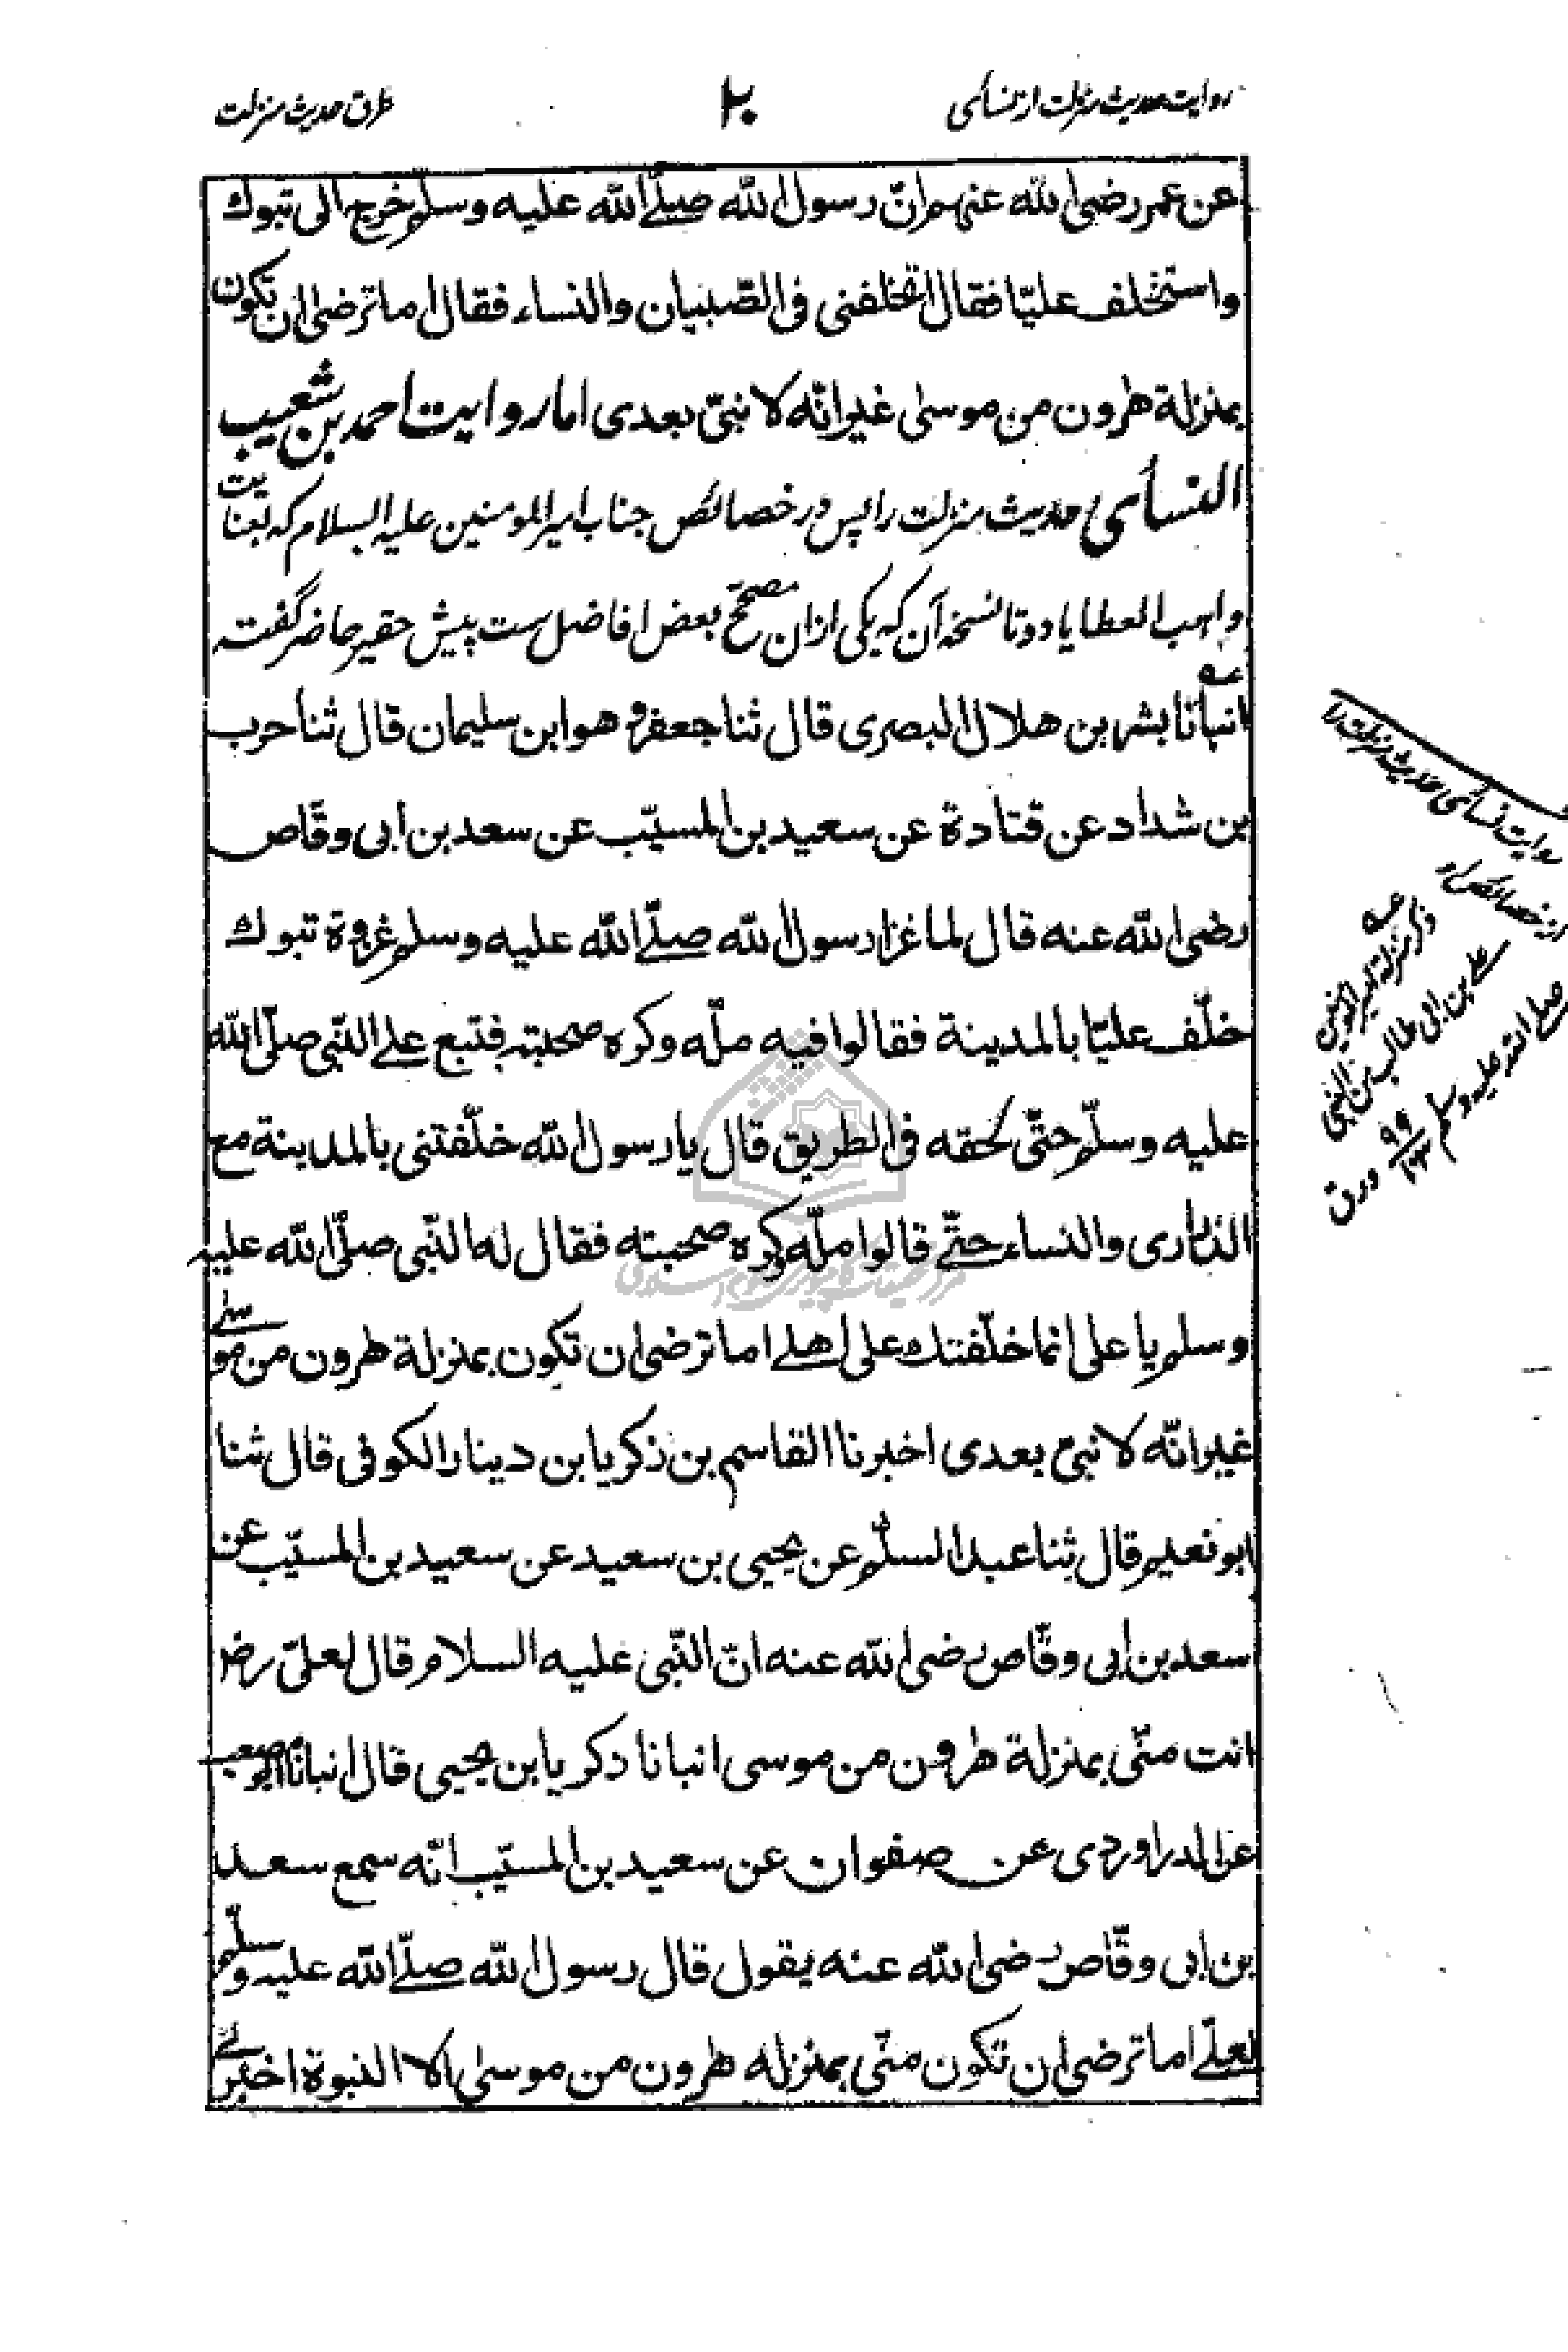 روایت حدیث منزلت از نسائی
۲۰
طرق حدیث منزلت
عن عمر رضی الله عنهم انّ رسول الله صلّے الله علیه وسلم خرج الی تبوك
واستخلف علیّا فقال اتخلفنی فی الصّبیان والنساء فقال اما ترضی ان تکون
بمنزلة هٰرون من موسیٰ غیر انّه لا نبیّ بعدی اما روایت احمد بن شعیب
النسائی حدیث منزلت را پس در خصائص جناب امیر المومنین علیه السلام که بعنایت
واهب العطایا دو تا نسخه آن که یکی ازان مصحح بعض افاضل ست پیش حقیر حاضر گفته
انبأنا بشر بن هلال البصری قال ثنا جعفر وهو ابن سلیمان قال ثنا حرب
بن شداد عن قتادة عن سعید بن المسیّب عن سعد بن أبی وقّاص
رضی الله عنه قال لما غزا رسول الله صلّے الله علیه وسلم غزوة تبوك
خلّف علیّا بالمدینة فقالوا فیه ملّه وکره صحبته فتبع علے النّبی صلّی الله
علیه وسلّم حتّی لحقه فی الطریق قال یا رسول الله خلّفتنی بالمدینة مع
الذراری والنساء حتّے قالوا ملّه وکره صحبته فقال له النّبی صلّی الله علیه
وسلم یا علی انما خلّفتك علی اهلے اما ترضی ان تکون بمنزلة هٰرون من موسٰے
غیر انّه لا نبیّ بعدی اخبرنا القاسم بن زکریا بن دینار الکوفی قال ثنا
ابو نعیم قال ثنا عبد السلٰم عن یحیی بن سعید عن سعید بن المسیّب عن
سعد بن ابی وقّاص رضی الله عنه انّ النّبی علیه السلام قال لعلیّ رض
انت منّی بمنزلة هٰرون من موسی انبانا ذکریا بن یحیی قال انبانا ابو مصعب
عن الدراوردی عن صفوان عن سعید بن المسیّب انّه سمع سعد
بن ابی وقّاص رضی الله عنه یقول قال رسول الله صلّے الله علیه وسلّم
لعلّے اما ترضی ان تکون منّی بمنزله هٰرون من موسیٰ الا النبوة اخبرنے
روایت نسائی حدیث منزلت را
در خصائص
ذکر منزلة امیر المؤمنین
علے بن ابی طالب من النبی
صلے الله علیه وسلم
ورق